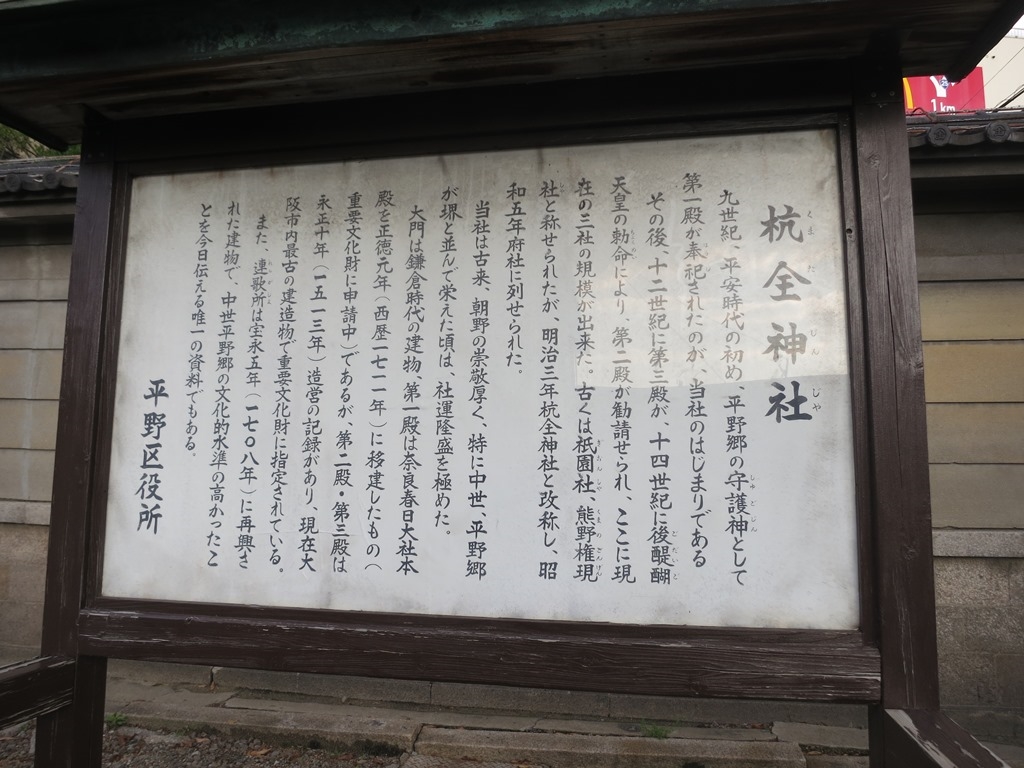 杭全神社
九世紀、平安時代の初め、平野郷の守護神として
第一殿が奉祀されたのが、当社のはじまりである
その後、十二世紀に第三殿が、十四世紀に後醍醐
天皇の勅命により、第二殿が勧請せられ、ここに現
在の三社の規模が出来た。古くは祇園社、熊野権現
社と称せられたが、明治三年杭全神社と改称し、昭
和五年府社に列せられた。
当社は古来、朝野の崇敬厚く、特に中世、平野郷
が堺と並んで栄えた頃は、社運隆盛を極めた。
大門は鎌倉時代の建物、第一殿は奈良春日大社本
殿を正徳元年（西歴一七一一年）に移建したもの（
重要文化財に申請中）であるが、第二殿・第三殿は
永正十年（一五一三年）造営の記録があり、現在大
阪市内最古の建造物で重要文化財に指定されている。
また、連歌所は宝永五年（一七〇八年）に再興さ
れた建物で、中世平野郷の文化的水準の高かったこ
とを今日伝える唯一の資料でもある。
平野区役所
1 km